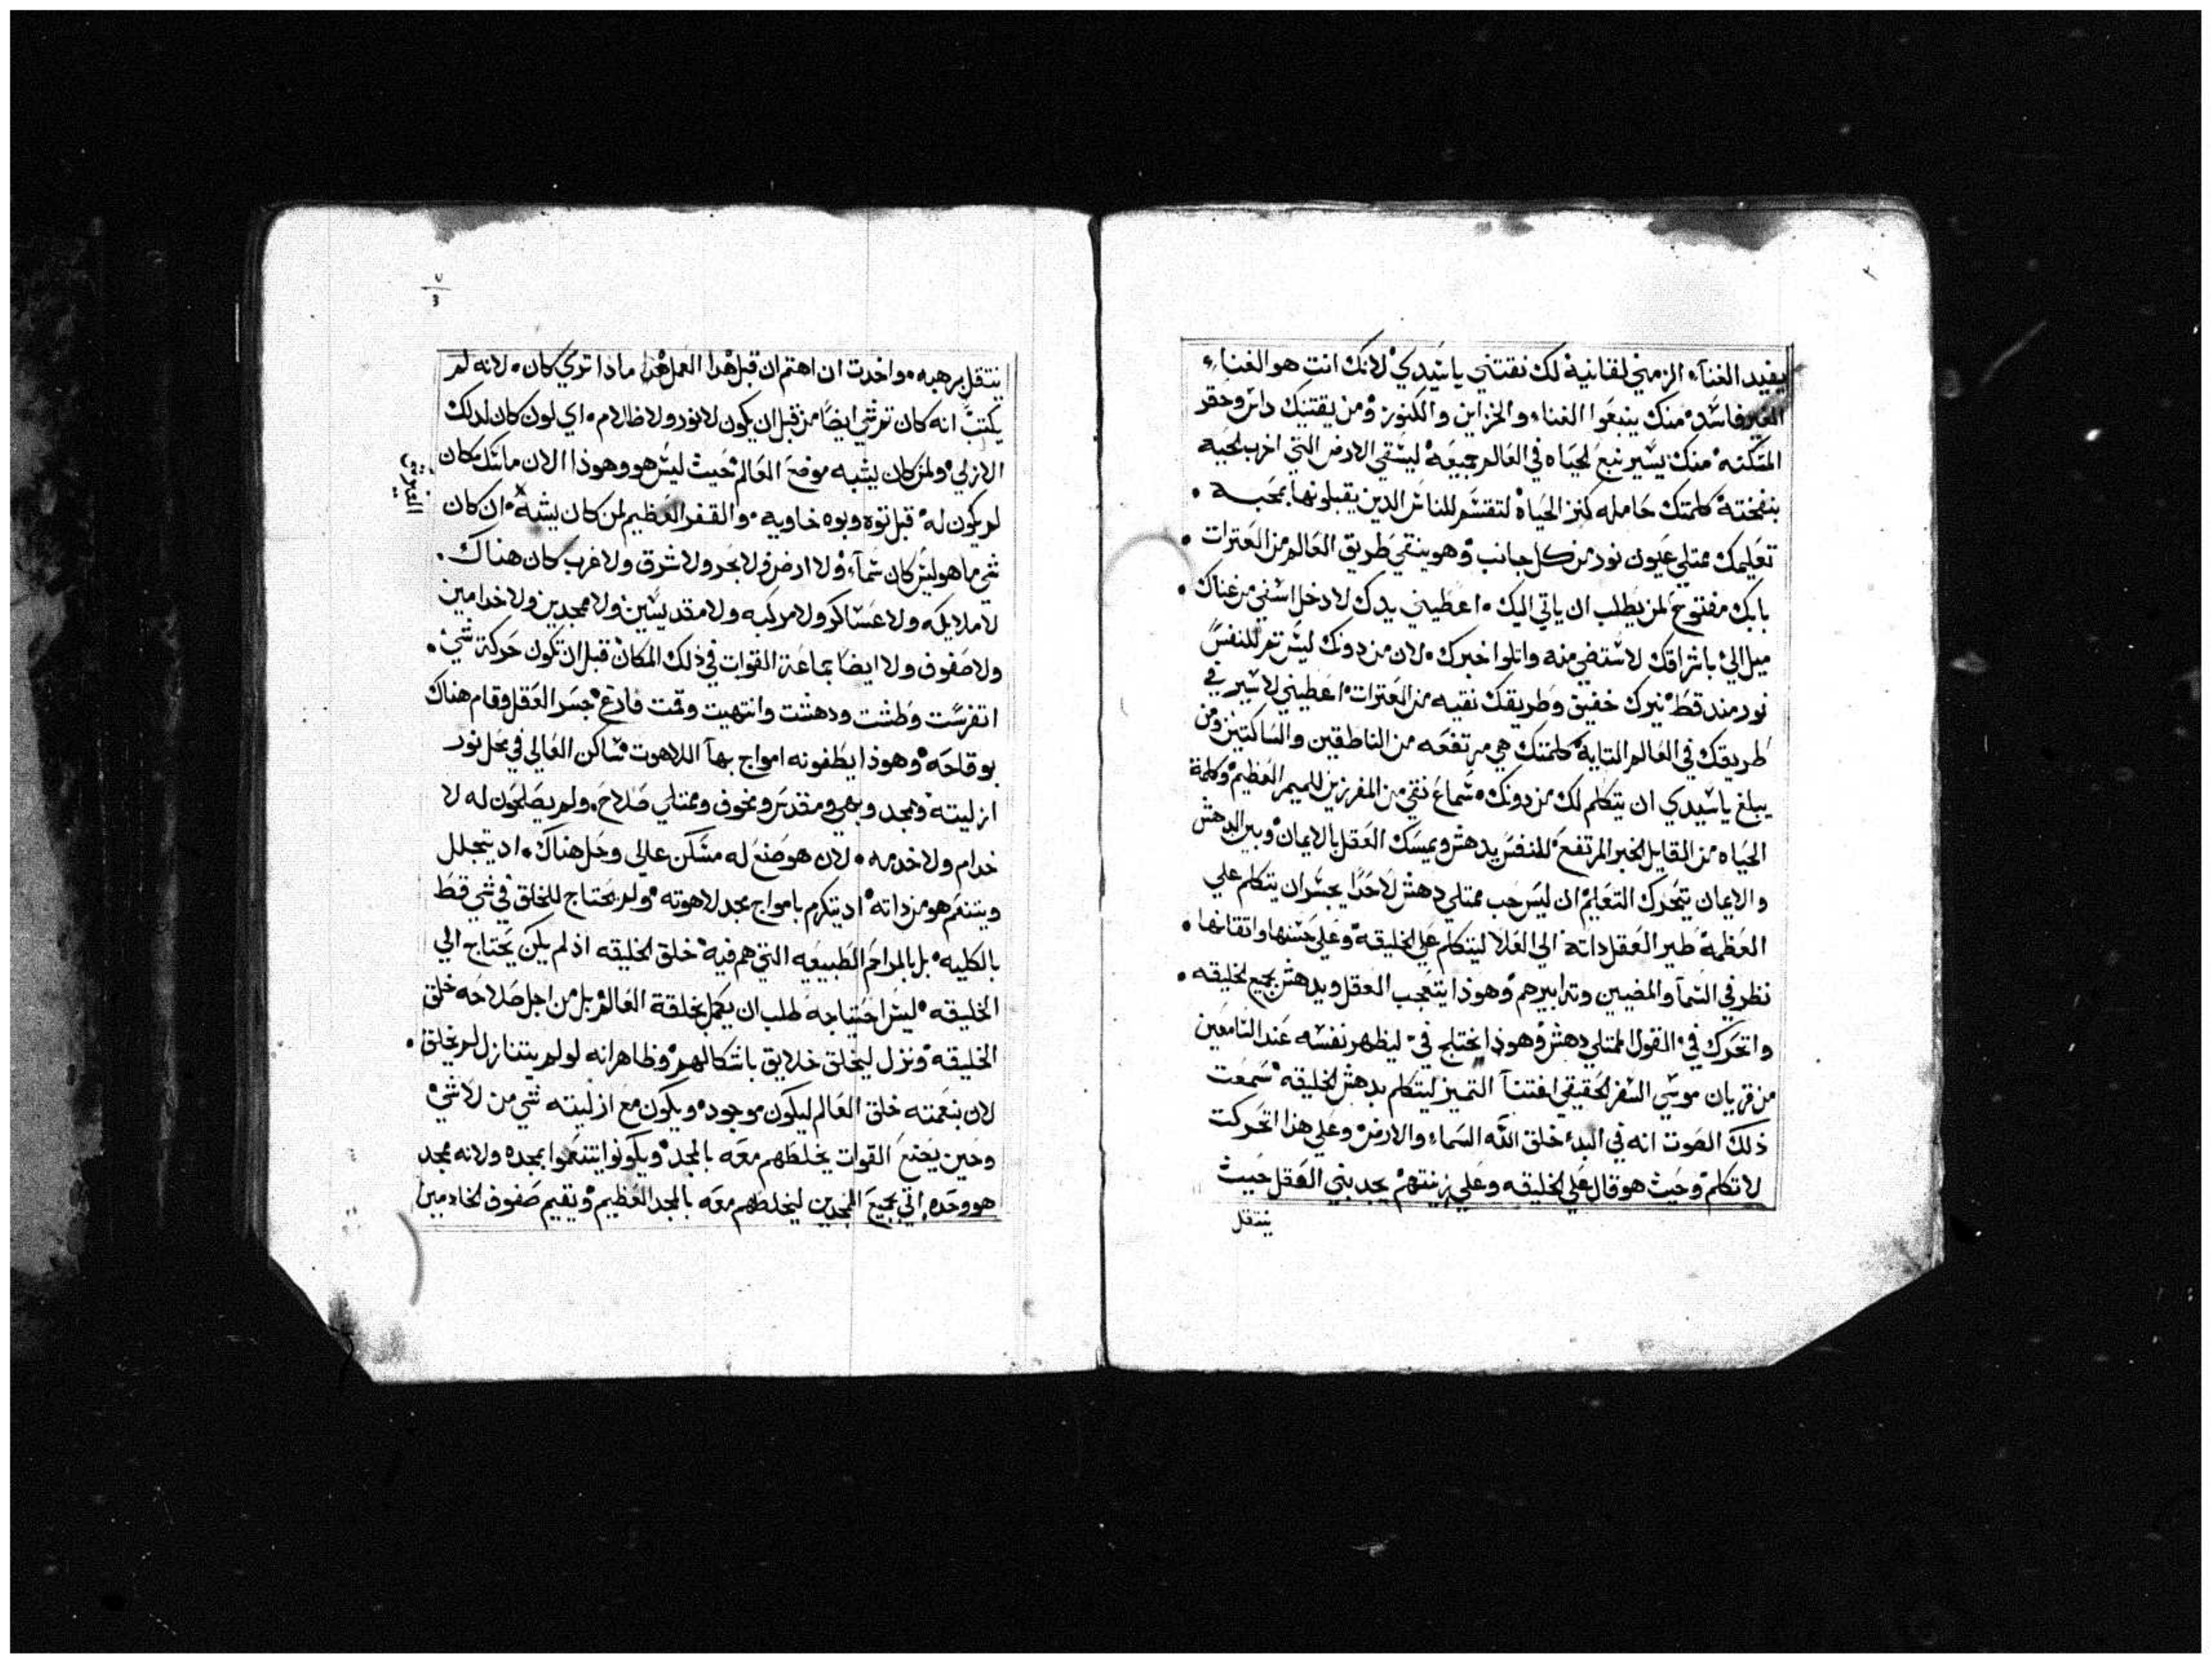 يفيد الغناء الزمني لقانيه لك نقتني ياسيدي لانك انت هو الغناء
الغير فاسد منك ينبعوا الغناء والخزاين والكنوز ومن يقتنيك داس وحقر
المسكنه منك يسير نبع الحياه في العالم جميعه ليسقي الارض التي اخرب الحيه
بنفخته كلمتك حامله كنز الحياة لتقتسم للناس الدين يقبلونها بمحبه
تعليمك ممتلي عيون نور من كل جانب وهو ينقي طريق العالم من العترات
بابك مفتوح لمن يطلب ان ياتي اليك اعطيني يدك لادخل استغني من غناك
ميل الي باشراقك لاستضي منه واتلوا خبرك لان من دونك ليس تم للنفس
نور مند قط نيرك خفيق وطريقك نقيه من العترات اعطيني لاسير في
طريقك في العالم التايه كلمتك هي مرتفعه من الناطقين والساكتين ومن
يبلغ ياسيدي ان يتكلم لك من دونك سماع نقي من المفرزين للميمر العظيم وكلمة
الحياه من القايل الخبر المرتفع للنفس يدهش ويمسك العقل بالايمان وبين الدهش
والايمان يتحرك التعليم ان ليس حب ممتلي دهش لاحدا يجسر ان يتكلم علي
العظمة طير العقل داته الي العلا ليتكلم علي الخليقة وعلي حسنها واتقانها
نظر في السما والمضيين وترابيرهم وهوذا يتعجب العقل ويدهش بجميع الخليقه
واتحرك في القول الممتلي دهش وهوذا يختلج في ليظهر نفسه عند السامعين
من قريان موسي السفر الحقيقي افتنا التميز ليتكلم بدهش الخليقه سمعت
ذلك الصوت انه في البدء خلق الله السماء والارض وعلي هذا اتحركت
لاتكلم وحيث هو قال علي الخليقه وعلي زينتهم يجد بني العقل حيث
ينتقل
ينتقل برهبه واخدت ان اهتم ان قبل هدا العمل هدا مادا تري كان لانه لم
يكتب انه كان تم شي ايضا من قبل ان يكون لا نور ولا ظلام اي لون كان لدلك
الازلي ولمن كان يشبه موضع العالم حيث ليس هو وهوذا الان ماسك مكان
لم يكون له قبل توه وبوه خاويه والقفر العظيم لمن كان يشبه ان كان
شي ما هو ليس كان سماء ولا ارض ولا بحر ولا شرق ولا غرب كان هناك
لا ملايكه ولا عساكر ولا مركبه ولا مقديسين ولا ممجدين ولا خدامين
ولا صفوف ولا ايضا جماعة القوات في ذلك المكان قبل ان تكون حركة شي
اتفرست وطشت ودهشت وانتهيت وقمت فارغ جسر العقل وقام هناك
بوقاحه وهوذا يطفونه امواج بها اللاهوت ساكن العالي في محل نور
ازليته ومجد وبهي ومقدس ومخوف وممتلي صلاح ولم يصلحون له لا
خدام ولا خدمه لان هو صنع له مسكن عالي وحل هناك اد يتجلل
ويتنعم هو من داته اد يتكرم بامواج مجد لاهوته ولم يحتاج للخلق في شي قط
بالكليه بل بالمراحم الطبيعيه التي هم فيه خلق الخليقه اذ لم يكن يحتاج الي
الخليقه ليس احتياجه طلب ان يكمل بخلقة العالم بل من اجل صلاحه خلق
الخليقه ونزل ليخلق خلايق باشكالهم وظاهر انه لو لم يتنازل لم يخلق
لان بنعمته خلق العالم ليكون موجود ويكون مع ازليته شي من لا شي
وحين يصنع القوات يخلطهم معه بالمجد ويكونوا يتنعموا بمجده ولانه مجد
هو وحده اتي بجميع الممجدين ليخلطهم معه بالمجد العظيم ويقيم صفوف الخادمين